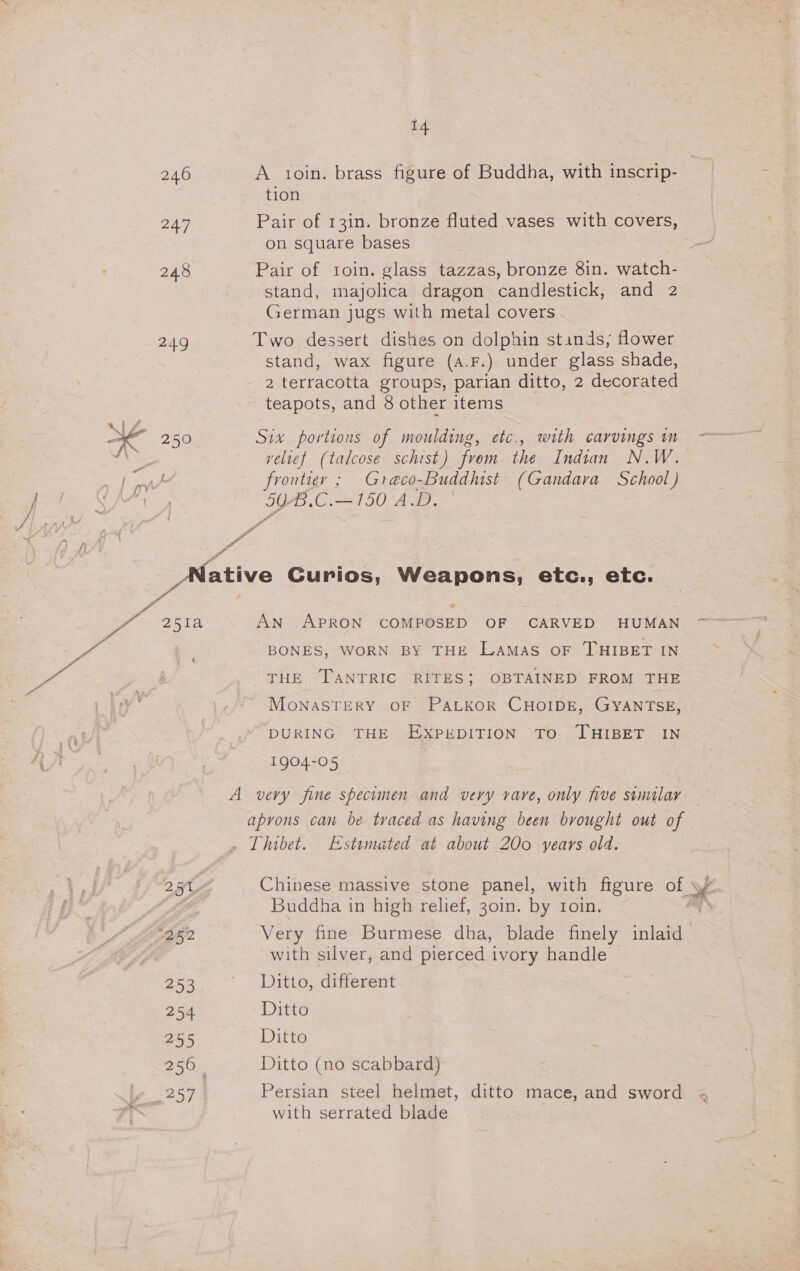 14
246 A 10in. brass figure of Buddha, with inscrip-
tion
247 Pair of 13in. bronze fluted vases with covers,
on square bases
248 Pair of 10in. glass tazzas, bronze 8in. watch-
stand, majolica dragon candlestick, and 2
German jugs with metal covers
249 Two dessert dishes on dolphin stands; flower
stand, wax figure (A.F.) under glass shade,
2 terracotta groups, parian ditto, 2 decorated
teapots, and 8 other items
250 Six portions of moulding, etc., with carvings in
relief (talcose schist) from the Indian N.W.
frontier ; Græco-Buddhist (Gandara School)
50 B.C.—150 A.D.
Native Curios, Weapons, etc., etc.
251a AN APRON COMPOSED OF CARVED HUMAN
BONES, WORN BY THE LAMAS OF THIBET IN
THE TANTRIC RITES; OBTAINED FROM THE
MONASTERY OF PALKOR CHOIDE, GYANTSE,
DURING THE EXPEDITION TO THIBET IN
1904-05
A very fine specimen and very rare, only five similar
aprons can be traced as having been brought out of
Thibet. Estimated at about 200 years old.
251 Chinese massive stone panel, with figure of
Buddha in high relief, 30in. by 10in.
252 Very fine Burmese dha, blade finely inlaid
with silver, and pierced ivory handle
253 Ditto, different
254 Ditto
255 Ditto
256 Ditto (no scabbard)
257 Persian steel helmet, ditto mace, and sword
with serrated blade